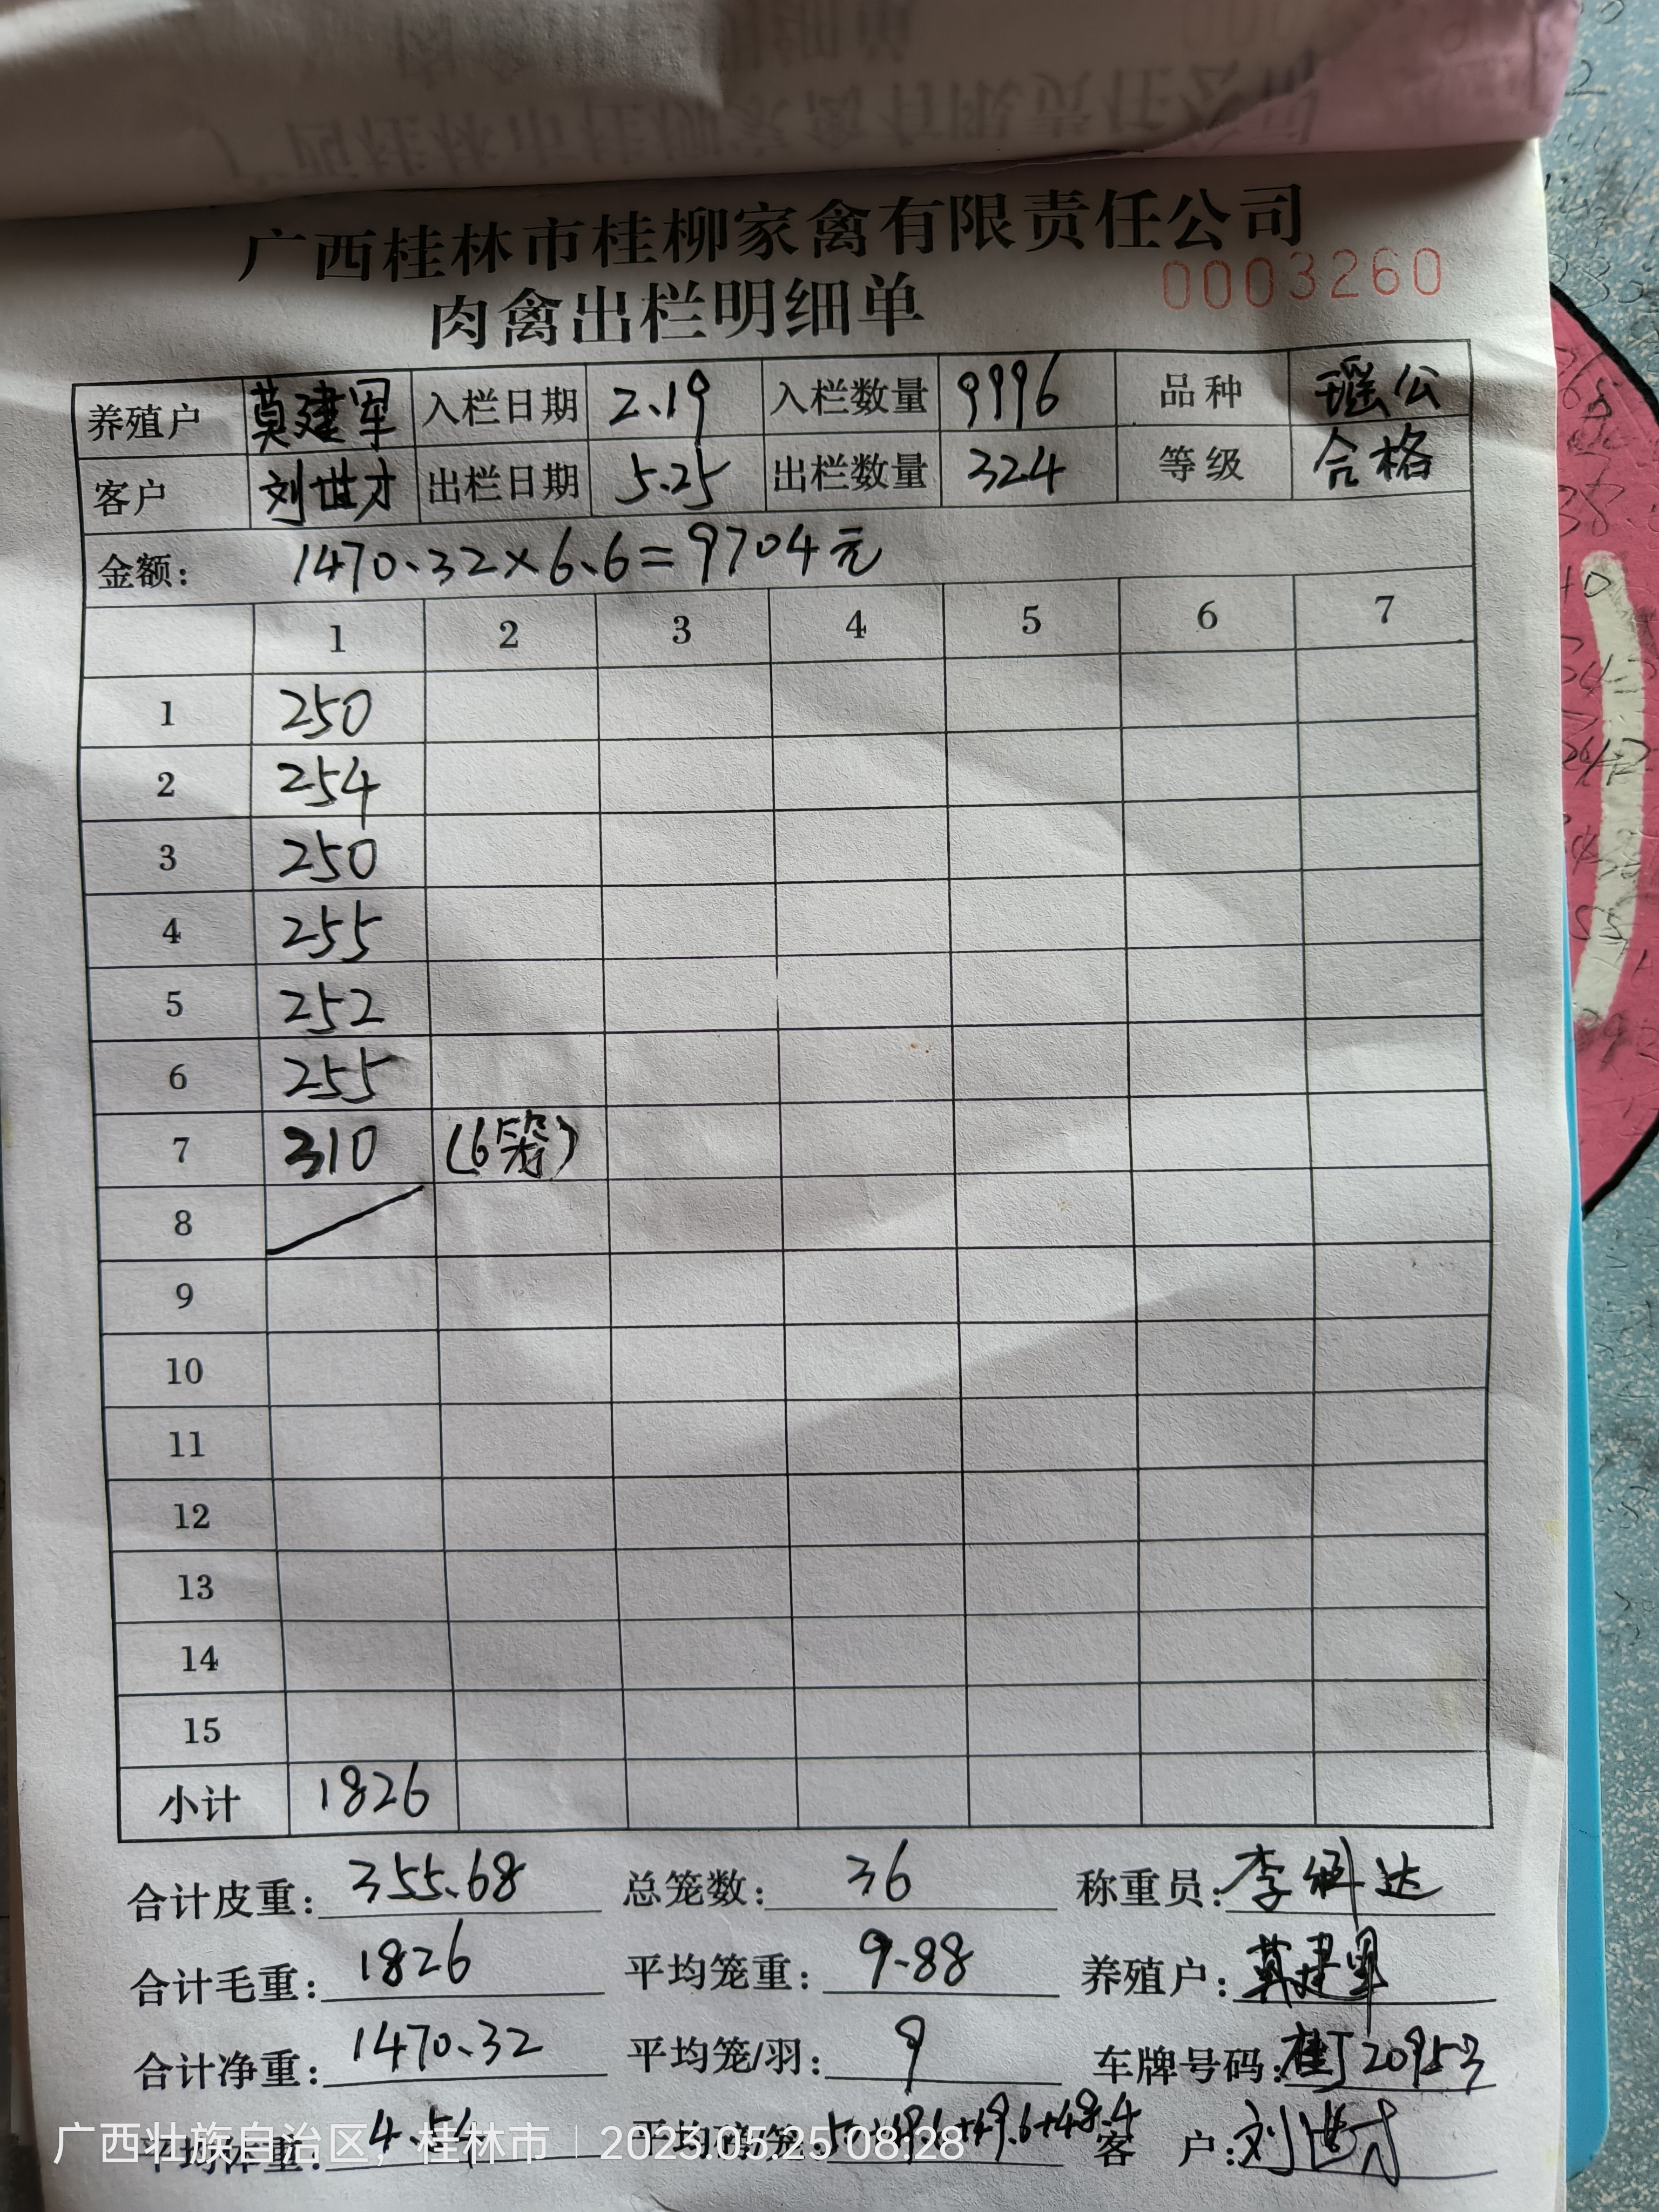 广西桂林市桂柳家禽有限责任公司
肉禽出栏明细单
0003260
养殖户 莫建军 入栏日期 2.19 入栏数量 9996 品种 瑶公
客户 刘世才 出栏日期 5.25 出栏数量 324 等级 合格
金额: 1470.32×6.6=9704元
1 2 3 4 5 6 7
1 250
2 254
3 250
4 255
5 252
6 255
7 310 (6笼)
8
9
10
11
12
13
14
15
小计 1826
合计皮重: 355.68 总笼数: 36 称重员: 李 达
合计毛重: 1826 平均笼重: 9.88 养殖户: 莫建军
合计净重: 1470.32 平均笼/羽: 9 车牌号码: 桂J20953
平均体重: 4.54 +49.6+48.4 客 户: 刘世才
广西壮族自治区，桂林市 | 2025.05.25 08:28